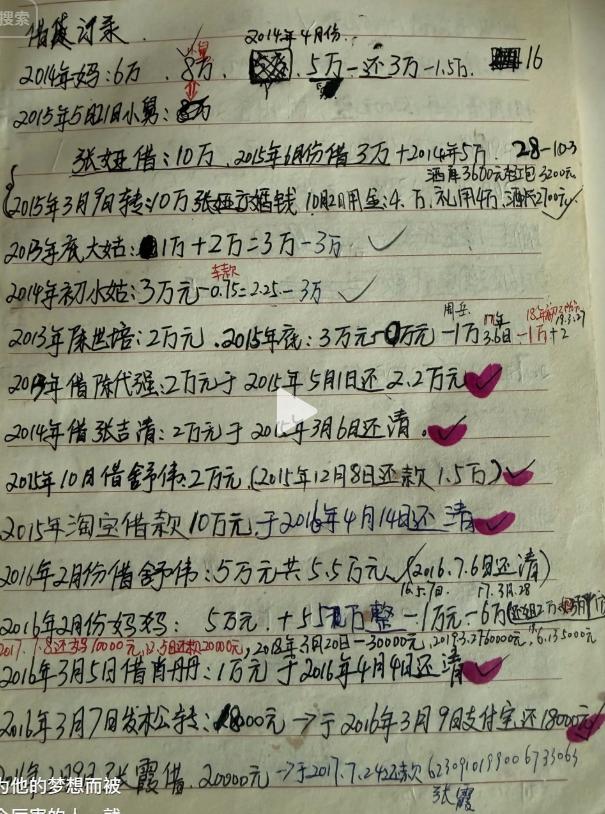 搜索
借贷记录.
2014年4月份.
2014年妈:6万. 8万. 5万-还3万-1.5万. 16
2015年5月21日小舅:
张娅借:10万. 2015年6月份借3万+2014年5万. 28-10=3
酒席3600元 红包3200元
2015年3月9日转:10万 10月2日用金:4.万.礼用4万.酒席2700元✓
2013年底大姑:1万+2万=3万-3万 ✓
车款
2014年初小姑:3万元-0.75=2.25-3万 ✓
周岳
2013年陈世培:2万元.2015年底:3万元-0万元-1万 3.6日-1万+2
2013年借陈代强:2万元于2015年5月1日还2.2万元✓
2014年借张吉清:2万元于2015年3月6日还清.✓
2015年10月借舒伟:2万元.(2015年12月8日还款1.5万)✓
2015年淘宝借款10万元.于2016年4月14日还清✓
2016年2月份借舒伟:5万元共5.5万元.(2016.7.6日还清)
16.5.7日. 17.3月.28
2016年2月份妈妈: 5万元.+5.5 万整-1万元-6万
2017.1.8还妈10000元, 还款20000元, 2018年3月20日-30000元,
2016年3月5日借肖丹丹:1万元于2016年4月4日还清✓
2016年3月7日 转:18000元→于2016年3月9日支付宝还18000元✓
张霞借.20000元→于2017.7.24还款
张霞
为他的梦想而被